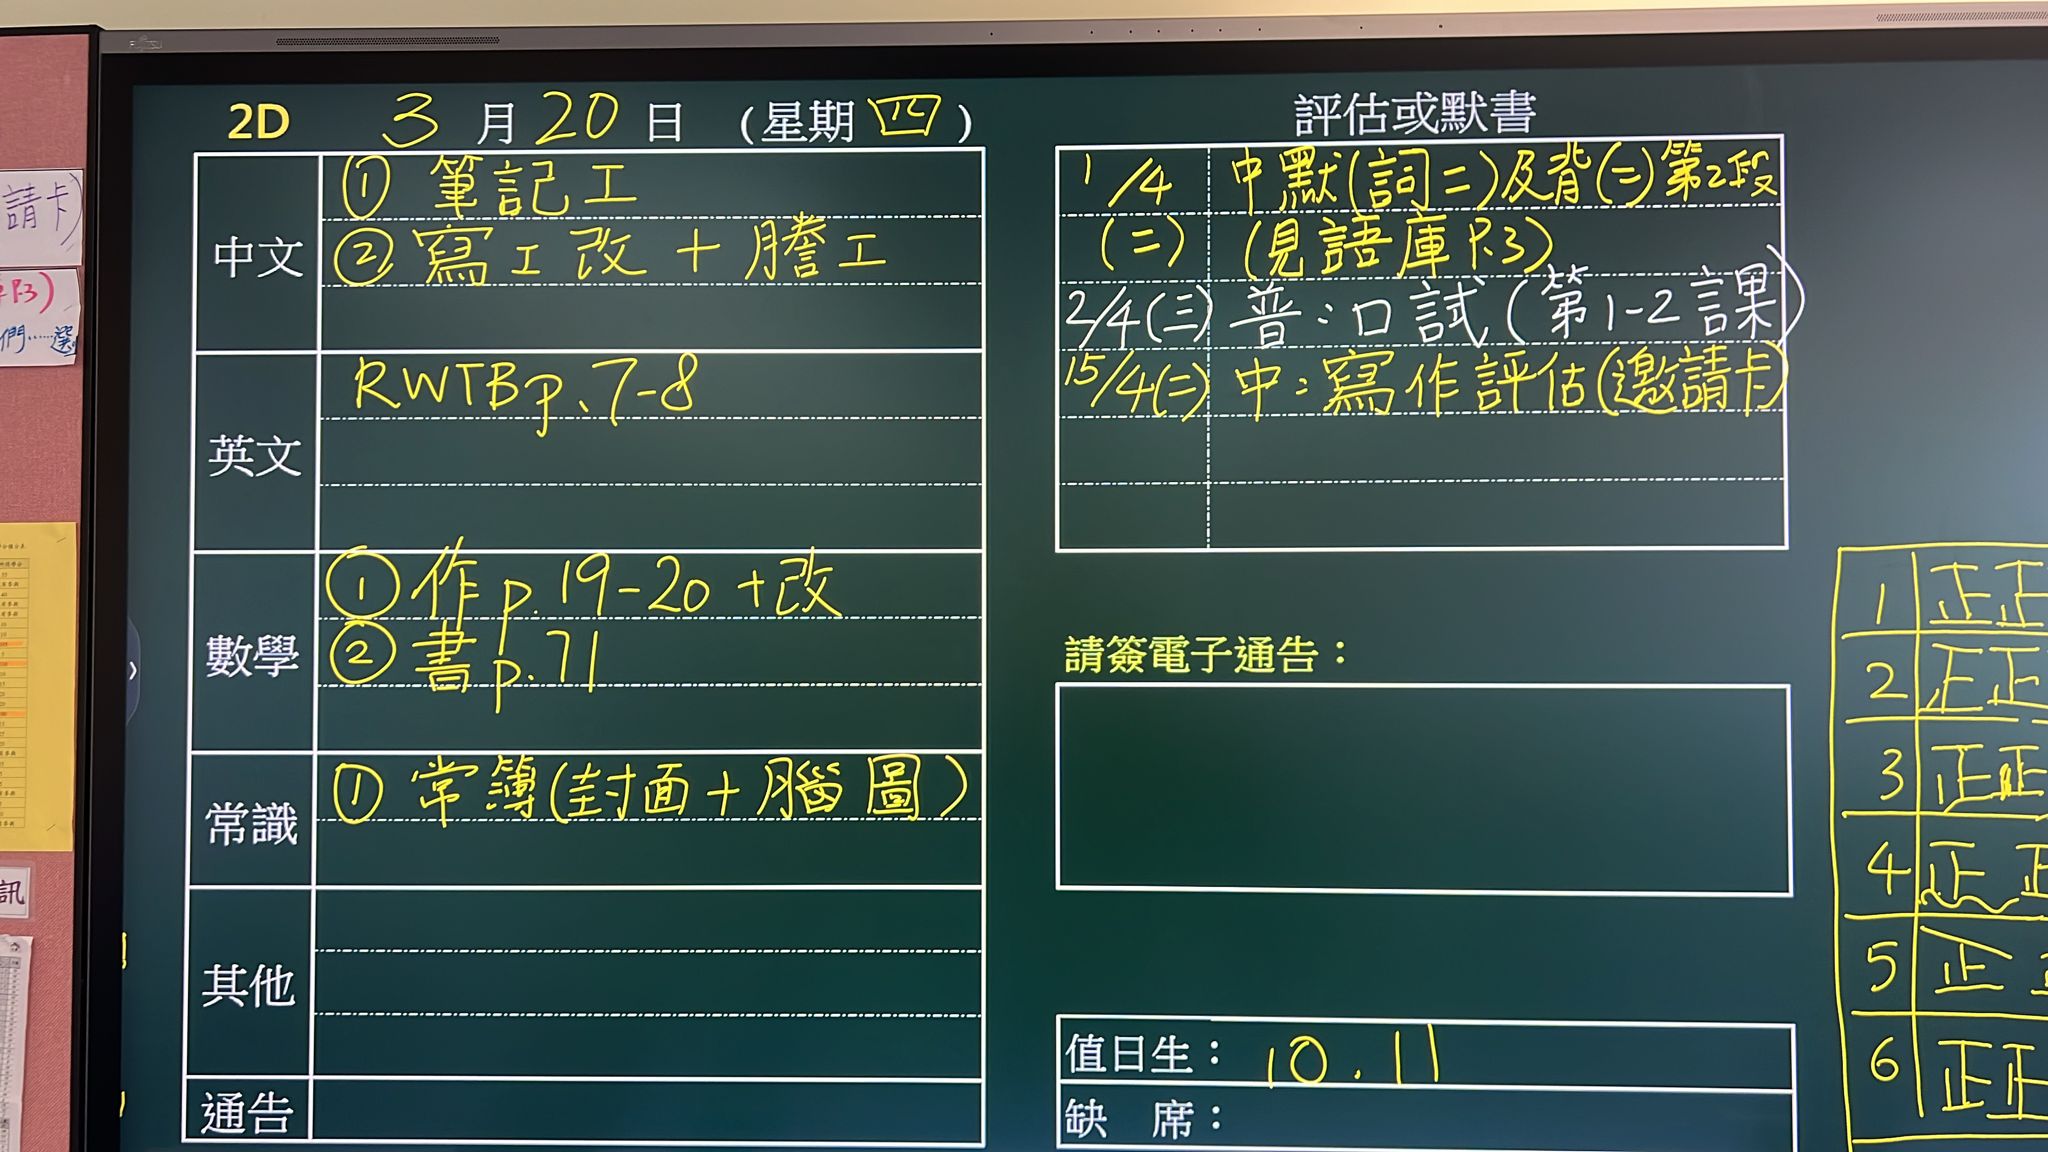 2D 3月20日（星期四）
中文
① 筆記工
② 寫工改＋謄工
英文
RWTB p.7-8
數學
① 作 p.19-20 +改
② 書 p.71
常識
① 常簿(封面＋腦圖)
其他
通告
評估或默書
1/4 中默(詞二)及背(二)第2段
(二) (見語庫 P.3)
2/4(三) 普：口試(第1-2課)
15/4(二) 中：寫作評估(邀請卡)
請簽電子通告：
值日生： 10.11
缺　席：
1 正正
2 正正
3 正正
4 正正
5 正
6 正正
請卡)
P.3)
們……選
訊